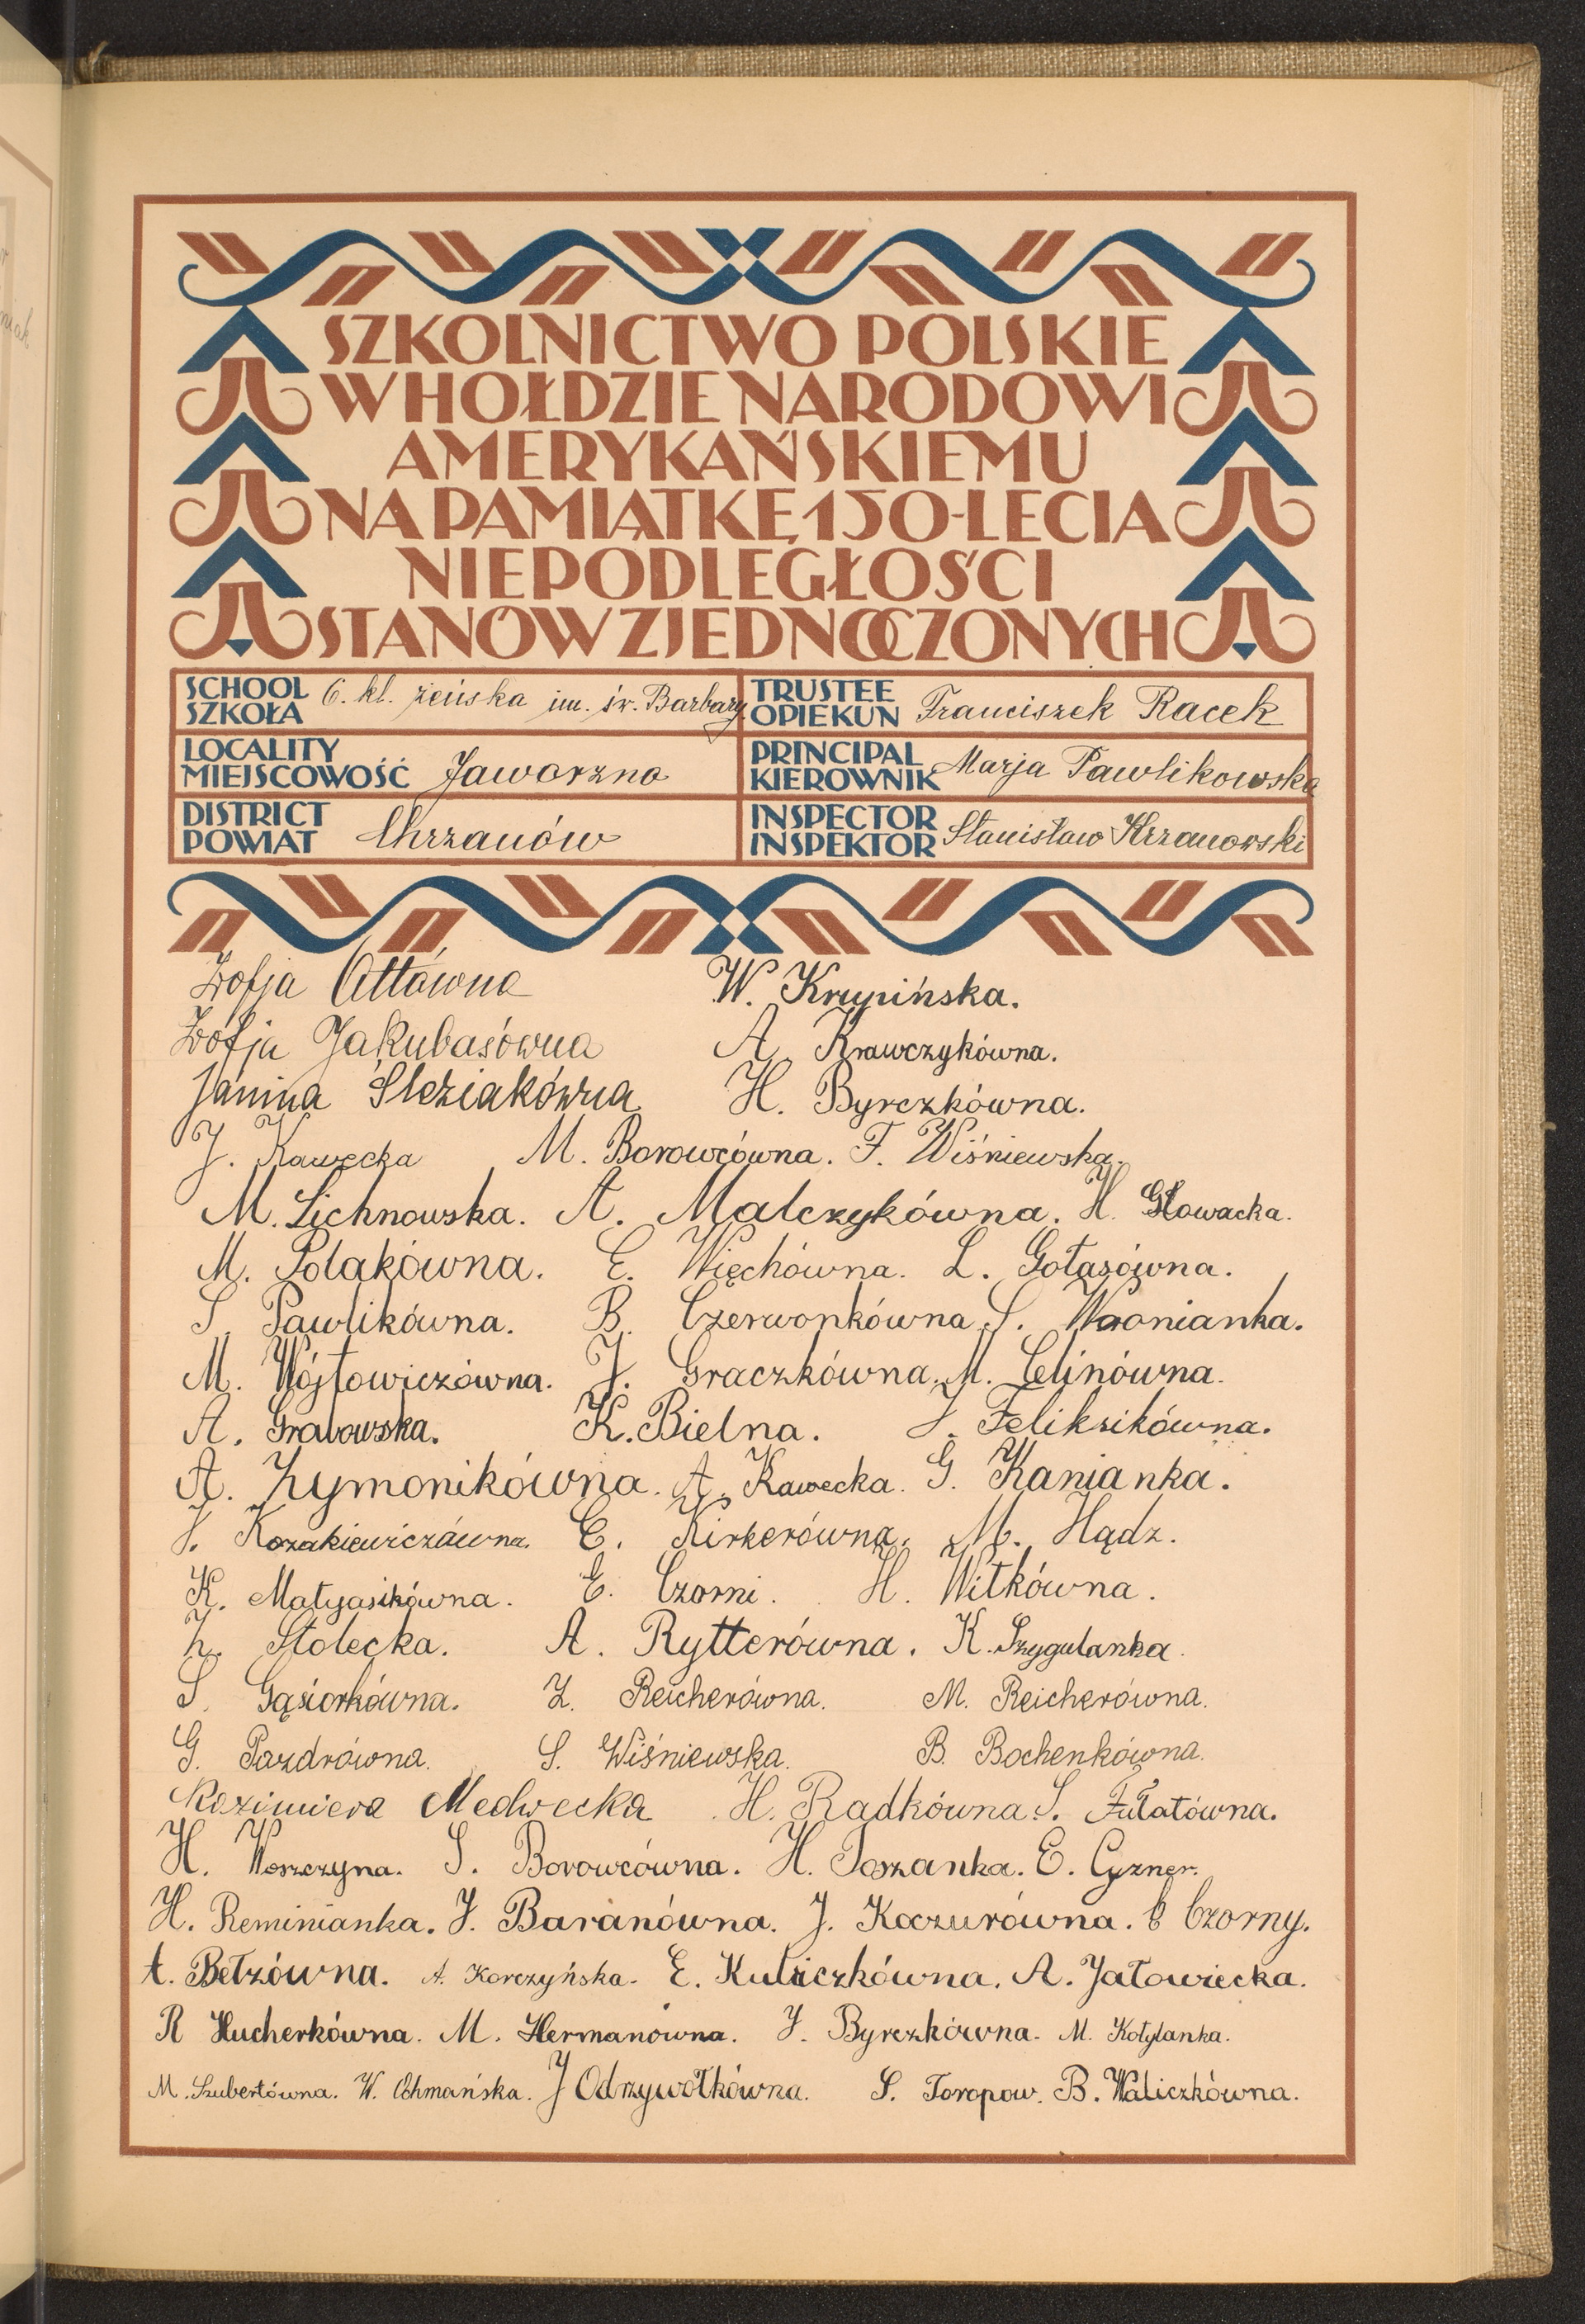 SZKOLNICTWO POLSKIE
W HOŁDZIE NARODOWI
AMERYKAŃSKIEMU
NA PAMIĄTKĘ 150-LECIA
NIEPODLEGŁOŚCI
STANÓW ZJEDNOCZONYCH
SCHOOL SZKOŁA 6. kl. żeńska im. św. Barbary TRUSTEE OPIEKUN Franciszek Racek
LOCALITY MIEJSCOWOŚĆ Jaworzno PRINCIPAL KIEROWNIK Marja Pawlikowska
DISTRICT POWIAT Chrzanów INSPECTOR INSPEKTOR Stanisław Krzanowski
Zofja Ottówna W. Krupińska.
Zofja Jakubasówna A. Krawczykówna.
Janina Śleziakówna H. Byrczkówna.
J. Kawecka M. Borowcówna. F. Wiśniewska.
M. Lichnowska. A. Malczykówna. H. Głowacka.
M. Polakówna. E. Więchówna. L. Gołasówna.
S. Pawlikówna. B. Czerwonkówna S. Woonianka.
M. Wójtowiczówna. J. Graczkówna. M. Celinówna.
A. Grabowska. K. Bielna. J. Feliksikówna.
A. Zymonikówna. A. Kawecka. G. Kanianka.
J. Kozakiewiczówna. C. Kirkerówna. M. Hądz.
K. Matyasikówna. E. Czorni. H. Witkówna.
Z. Stolecka. A. Rytterówna. K. Szygulanka.
S. Gąsiorkówna. Z. Reicherówna. M. Reicherówna.
G. Pazdrówna. S. Wiśniewska. B. Bochenkówna.
Kazimiera Medwecka H. Radkówna. S. Fułatówna.
H. Woszczyna. S. Borowcówna. H. Soszanka. E. Cyzner.
H. Reminianka. J. Baranówna. J. Koczurówna. C Czorny.
A. Bełzówna. A. Korczyńska. E. Kuliczkówna. A. Jałowiecka.
R Kucherkówna. M. Hermanówna. J. Byrczkówna. M. Kotylanka.
M. Szubertówna. W. Ochmańska. J Odrzywołkówna. S. Toropow. B. Waliczkówna.